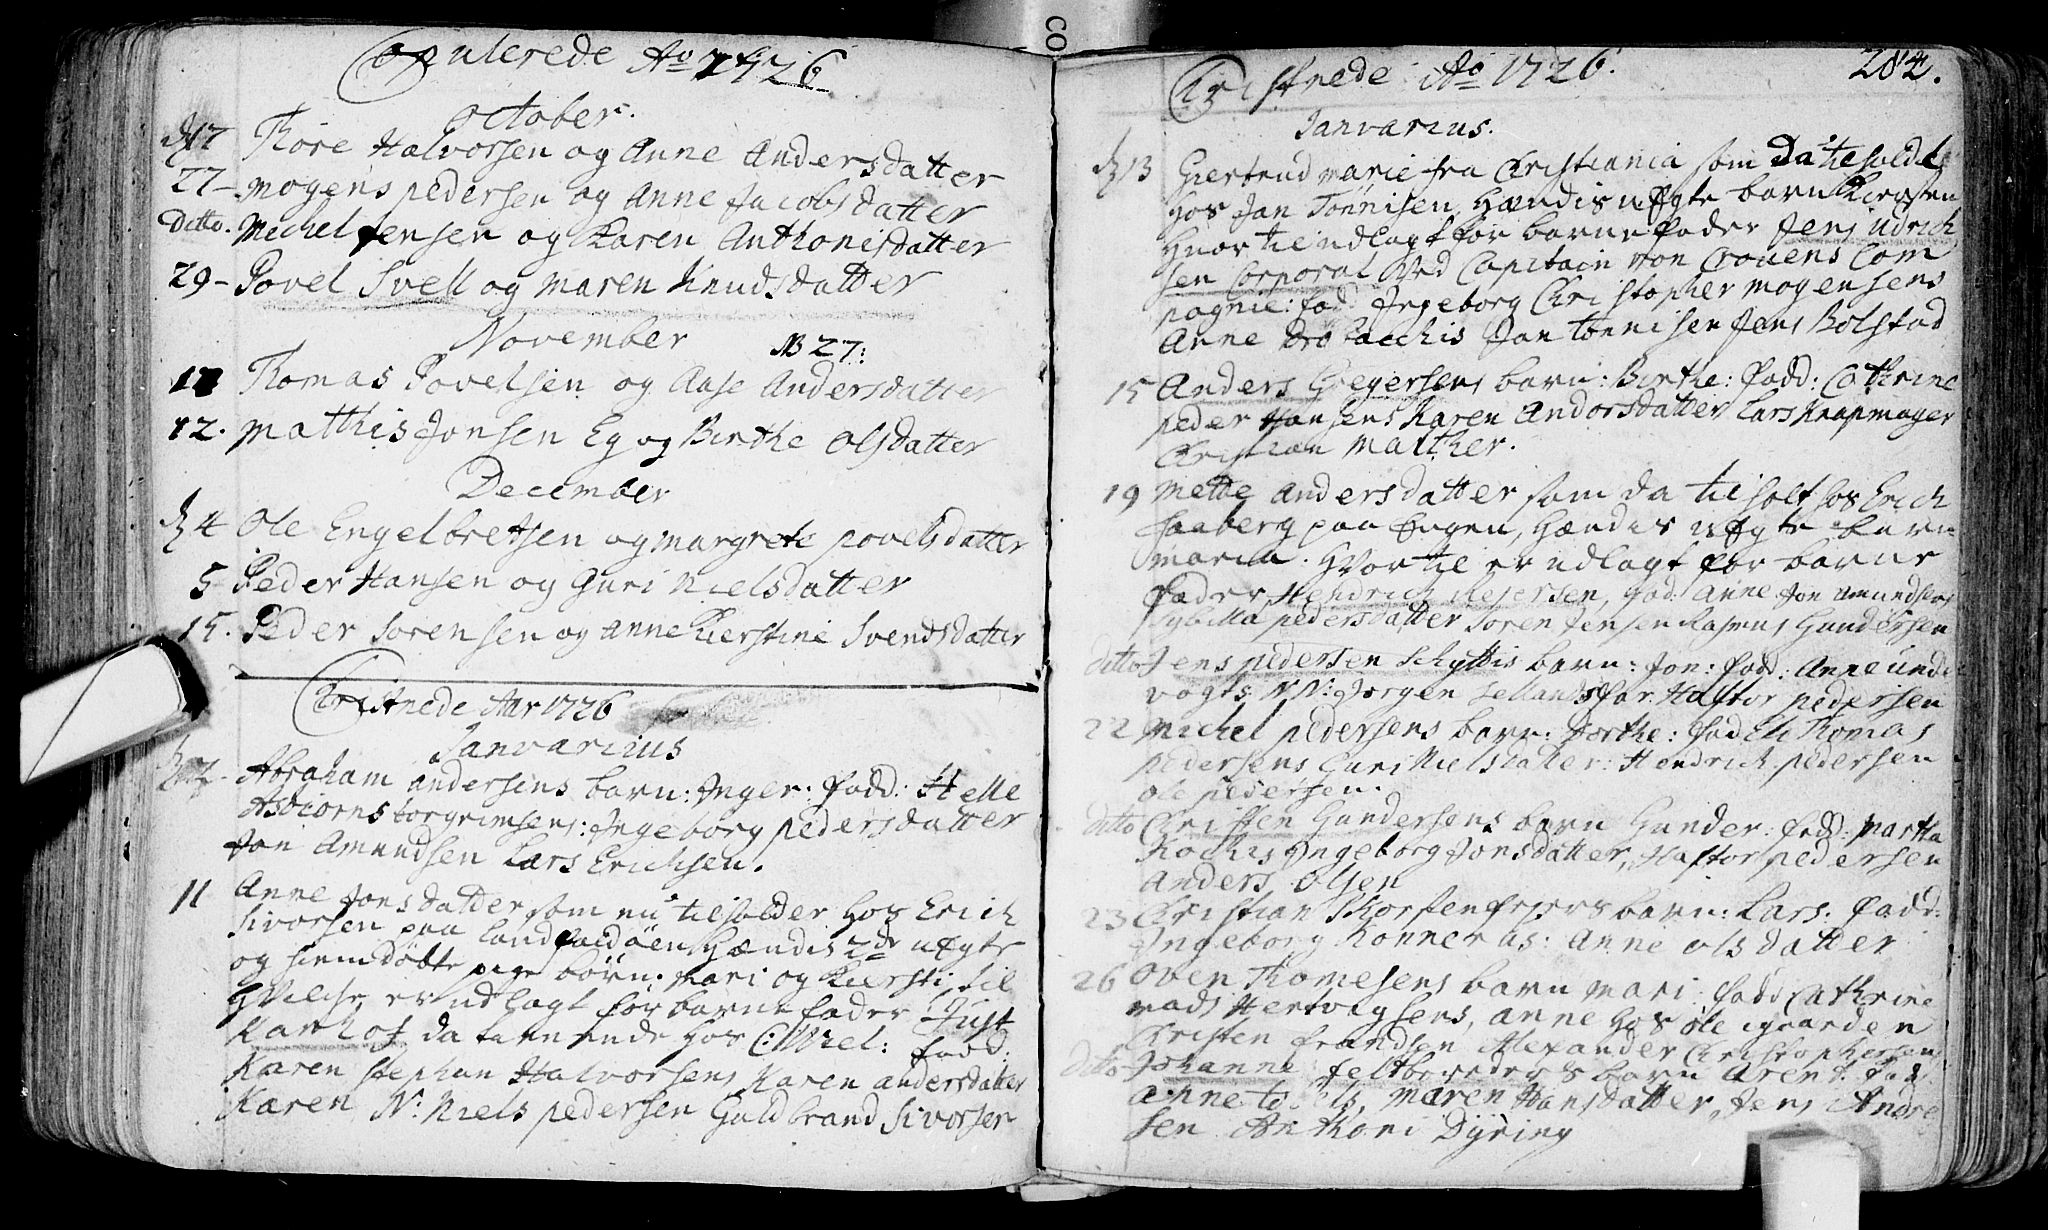 Copulerede Ao 1726
October.
d 17 Tore Halvorsen og Anne Andersdatter
27 - Mogens pedersen og Anne Jacobsdatter
Ditto. Michel Jensen og Karen Anthonisdatter
29 - Povel Svell og Maren Knudsdatter
November NB 27:
11 Thomas Povelsen og Aase Andersdatter
12. Matthis Jonsen Eg og Birthe Olsdatter
December
d 4 Ole Engelbretsen og Margrete povelsdatter
5 - Peder Hansen og Guri Nielsdatter
15. Peder Sorensen og Anne Kierstine Svendsdatter
Christnede Aar 1726
Januarius
Abraham Andersens barn: Inger: fadd: Helle
Asbiorns torgrimsens: Ingeborg pedersdatter
Jon Amundsen Lars Erichsen.
11 Anne Jonsdatter som nu tilholder hos Erich
Sivorsen paa Landfaldöen Hændis 2de uEgte
og hiemdöbte pige börn: Mari og Kiersti, til
hvilche er udlagt for barne fader Just
da tienende hos fadd:
Karen Stephen Halvorsens Karen andersdatter
Karen N: Niels pedersen Guldbrand Sivorsen
Christnede Ao 1726. 282.
Januarius.
d 13 Giertrud marie fra Christiania som Da tilholdt
hos Jan Tönnisen, Hændis uEgte barn Kiersten
Hvor til udlagt for barne fader Jens Udrich
sen Corporal Ved Capitain von Crouens Com
pagnie: fad Ingeborg Christopher mogensens
Anne Jan tönnisen Jens Bolstad
15 Anders Gregersens barn: Birthe: fadd: Cathrine
peder Hansens Karen Andorsdatter Lars Knapmager
Christian Matther.
19 Mette Andersdatter som da tilholt hos Erich
paa Engen, Hændis uEgte barn
maria. Hvor til er udlagt for barne
fader Hendrich Rejersen, fad: Anne Jon Amundsens
Sybilla pedersdatter Soren Jensen Rasmus Gundersen
ditto Jens pedersen Schyttis barn: Jon: fadd: Anne under
vogts NN: Jorgen Haftor pedersen
22 Michel pedersens barn: Dorthe: fad Eli Thomas
pedersens Guri Nielsdatter: Hendrich pedersen
ole pedersen.
ditto Christen Gundersens barn Gunder: fadd: Martha
Kochis Ingeborg Jonsdatter, Haftor pedersen
Anders Olsen
23 Christian Skorstenfejers barn: Lars. fadd:
Ingeborg Konnerus: Anne olsdatter
26 Oven Thomesens barn mari: fadd Cathrine
mads Hertvigsens, anne hos ole igaarden
Christen frandsen Alexander Christophersen
ditto Johanne barn Arent fad
anne Maren Hansdatter, Jens Andre
sen Anthoni Dyring